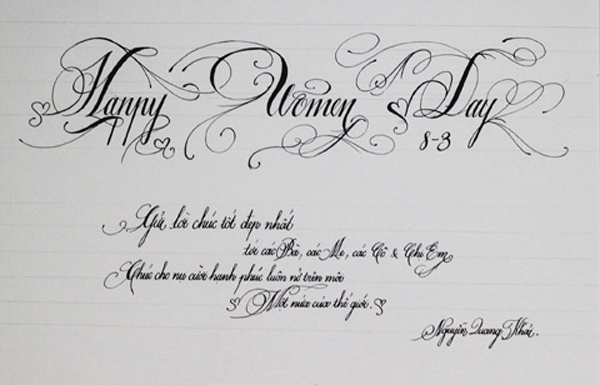 Happy Women's Day
8-3
Gửi lời chúc tốt đẹp nhất
tới các Bà, các Mẹ, các Cô & Chị Em
Chúc cho nụ cười hạnh phúc luôn nở trên môi
Một nửa của thế giới.
Nguyễn Quang Khải.